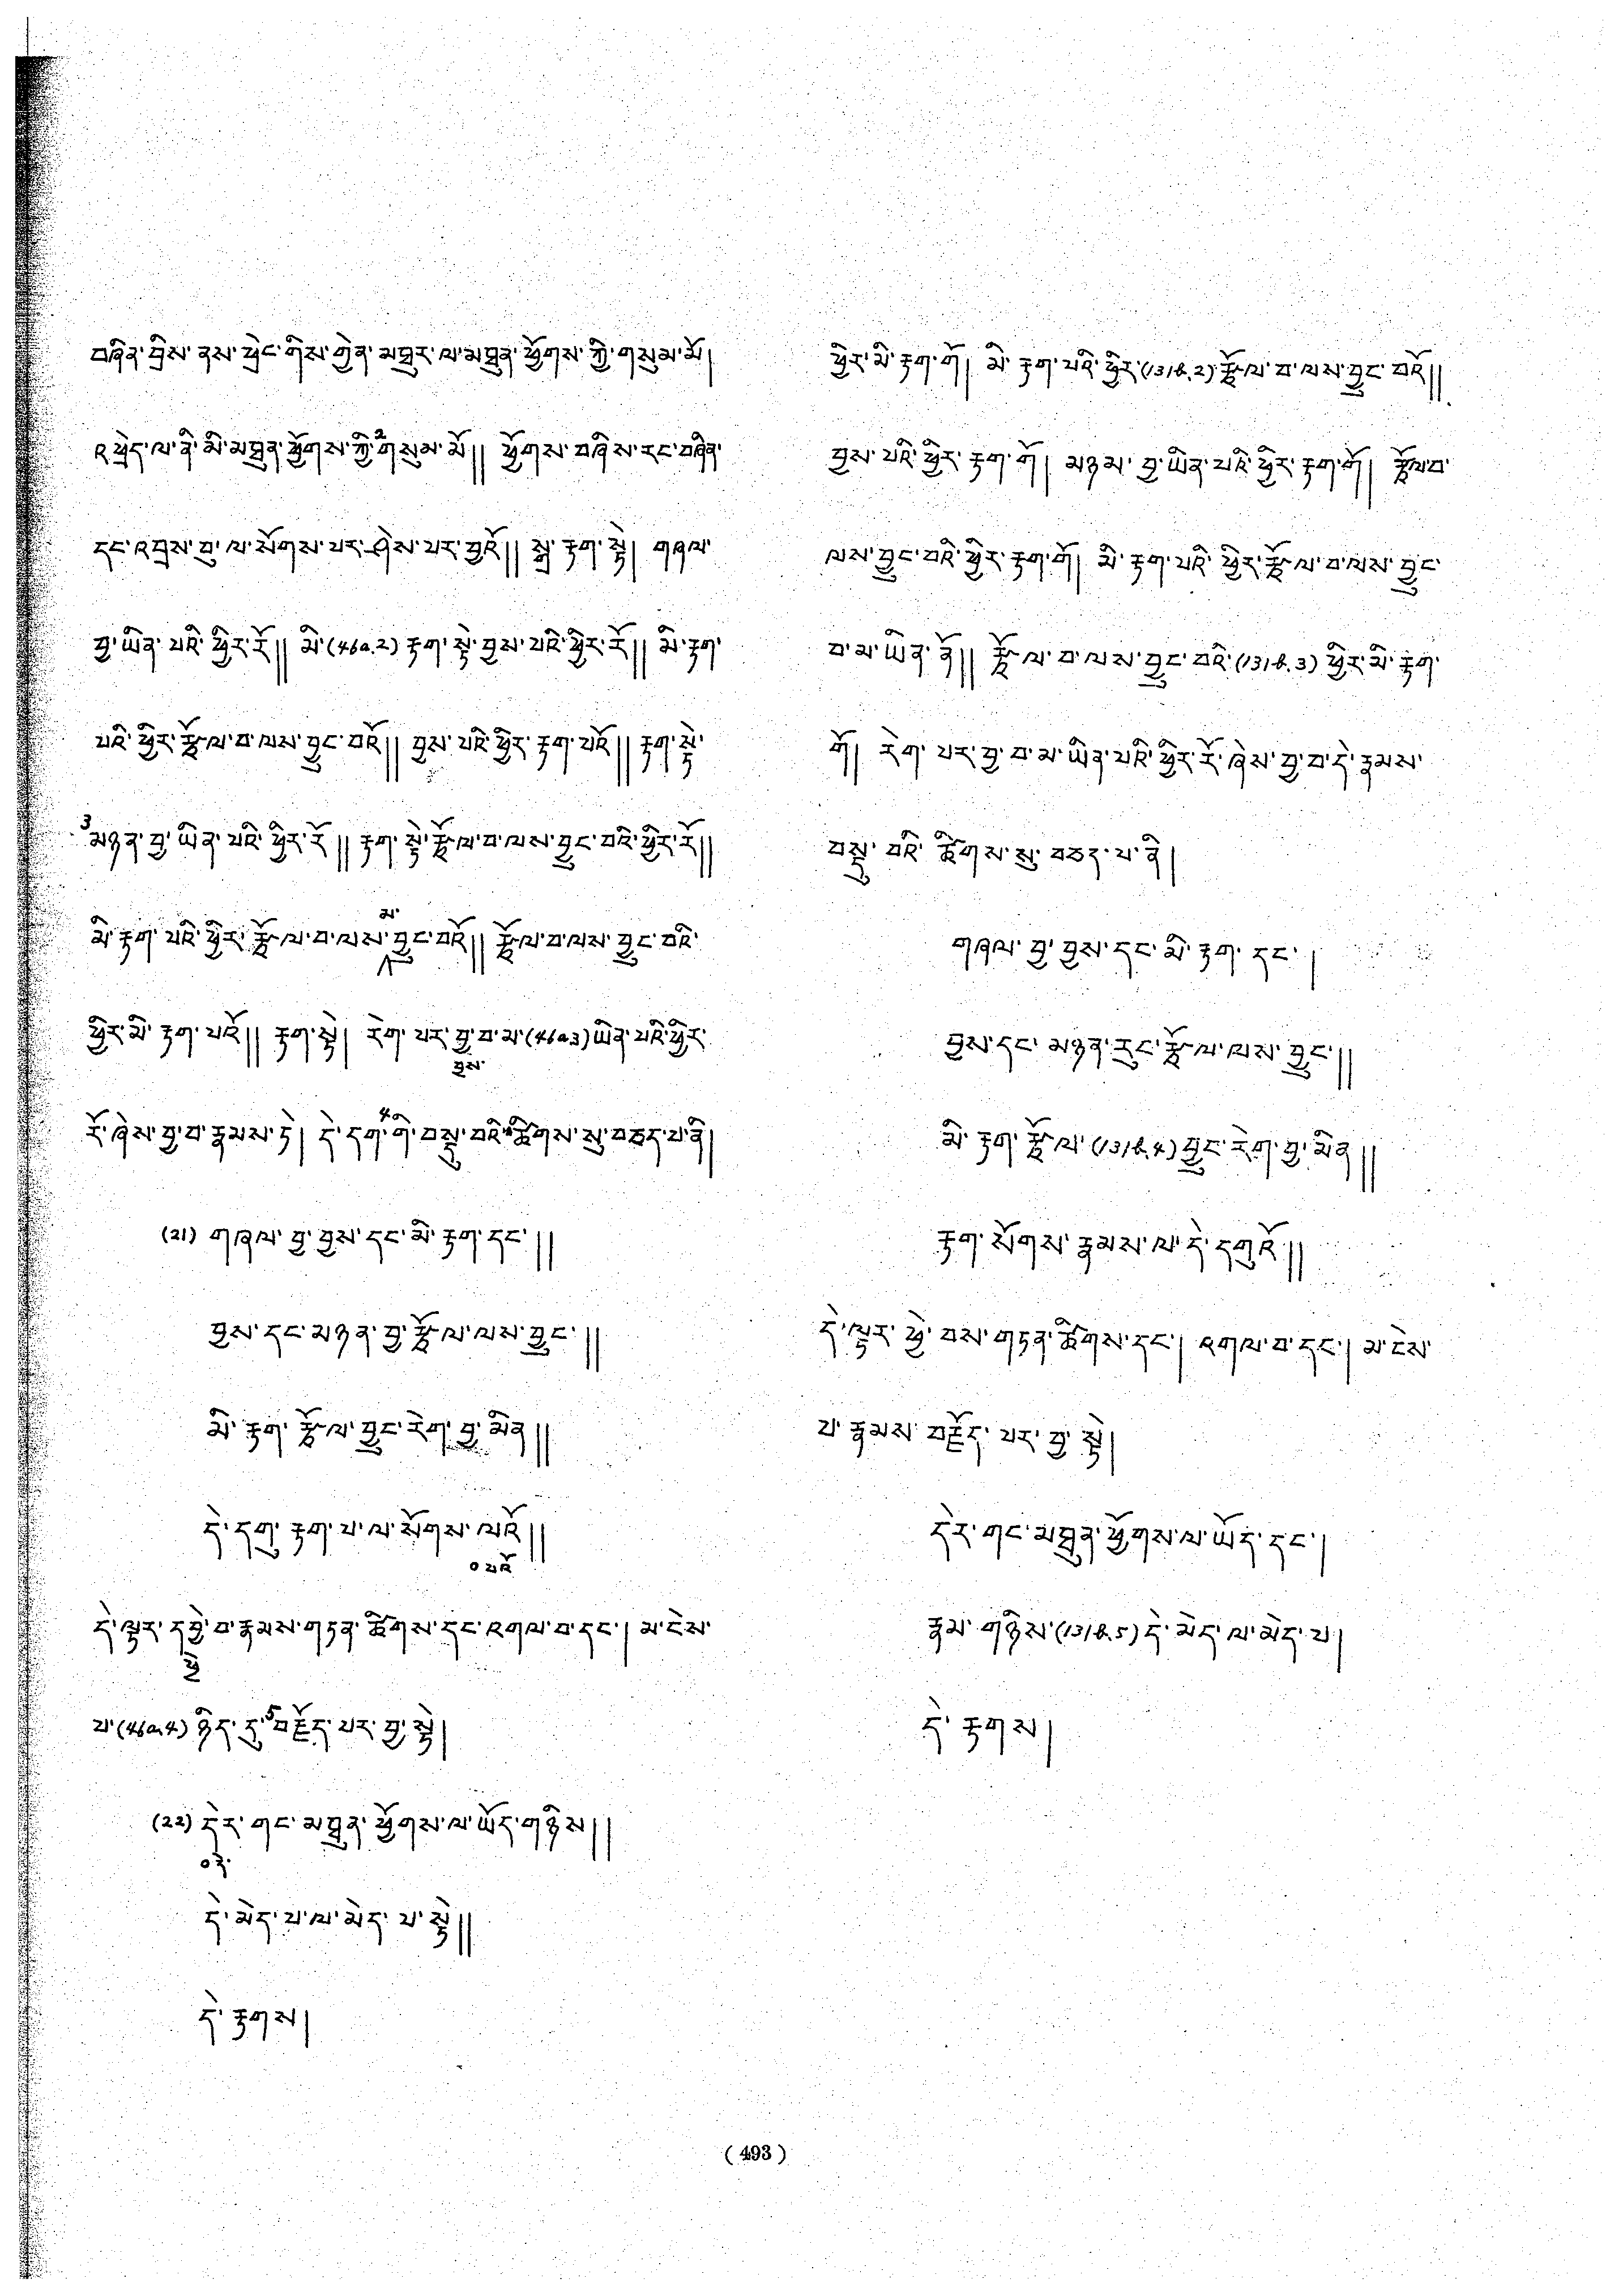 བཞིན་བྲིས་ནས་ཕྲེང་གིས་གྱེན་མཐུར་ལ་མཐུན་ཕྱོགས་ཀྱི་གསུམ་མོ།
འཕྲེད་ལ་ནི་མི་མཐུན་ཕྱོགས་ཀྱི་2གསུམ་མོ།། ཕྱོགས་བཞིས་རང་བཞིན་
དང་འབྲས་བུ་ལ་སོགས་པར་ཤེས་པར་བྱའོ།། སྒྲ་རྟག་སྟེ། གཞལ་
བྱ་ཡིན་པའི་ཕྱིར་རོ།། མི་(46a.2)རྟག་སྟེ་བྱས་པའི་ཕྱིར་རོ།། མི་རྟག་
པའི་ཕྱིར་རྩོལ་བ་ལས་བྱུང་བའོ།། བྱས་པའི་ཕྱིར་རྟག་པའོ།། རྟག་སྟེ་
3མཉན་བྱ་ཡིན་པའི་ཕྱིར་རོ།། རྟག་སྟེ་རྩོལ་བ་ལས་བྱུང་བའི་ཕྱིར་རོ།།
མ་
མི་རྟག་པའི་ཕྱིར་རྩོལ་བ་ལས་བྱུང་བའོ།། རྩོལ་བ་ལས་བྱུང་བའི་
ཕྱིར་མི་རྟག་པའོ།། རྟག་སྟེ། རེག་པར་བྱ་བ་མ་(46a.3)ཡིན་པའི་ཕྱིར་
བྱས་
རོ་ཞེས་བྱ་བ་རྣམས་ཏེ། དེ་དག་4གི་བསྡུ་བའི་ཚིགས་སུ་བཅད་པ་ནི།
(21) གཞལ་བྱ་བྱས་དང་མི་རྟག་དང་།།
བྱས་དང་མཉན་བྱ་རྩོལ་ལས་བྱུང་།།
མི་རྟག་རྩོལ་བྱུང་རེག་བྱ་མིན།།
དེ་དགུ་རྟག་པ་ལ་སོགས་ལའོ།།
༠པའོ
དེ་ལྟར་དབྱེ་བ་རྣམས་གཏན་ཚིགས་དང་འགལ་བ་དང་། མ་ངེས་
ཕྱེ
པ་(46a.4)ཉིད་དུ་5བརྗོད་པར་བྱ་སྟེ།
(22) དེར་གང་མཐུན་ཕྱོགས་ལ་ཡོད་གཉིས།།
༠དེ་
དེ་མེད་པ་ལ་མེད་པ་སྟེ།།
དེ་རྟགས།
ཕྱིར་མི་རྟག་གོ། མི་རྟག་པའི་ཕྱིར་(131b.2)རྩོལ་བ་ལས་བྱུང་བའོ།།
བྱས་པའི་ཕྱིར་རྟག་གོ། མཉམ་བྱ་ཡིན་པའི་ཕྱིར་རྟག་གོ། རྩོལ་བ་
ལས་བྱུང་བའི་ཕྱིར་རྟག་གོ། མི་རྟག་པའི་ཕྱིར་རྩོལ་བ་ལས་བྱུང་
བ་མ་ཡིན་ནོ།། རྩོལ་བ་ལས་བྱུང་བའི་(131b.3)ཕྱིར་མི་རྟག་
གོ། རེག་པར་བྱ་བ་མ་ཡིན་པའི་ཕྱིར་རོ་ཞེས་བྱ་བ་དེ་རྣམས་
བསྡུ་བའི་ཚིགས་སུ་བཅད་པ་ནི།
གཞལ་བྱ་བྱས་དང་མི་རྟག་དང་།
བྱས་དང་མཉན་རུང་རྩོལ་ལས་བྱུང་།།
མི་རྟག་རྩོལ་(131b.4)བྱུང་རེག་བྱ་མིན།།
རྟག་སོགས་རྣམས་ལ་དེ་དགུའོ།།
དེ་ལྟར་ཕྱེ་བས་གཏན་ཚིགས་དང་། འགལ་བ་དང་། མ་ངེས་
པ་རྣམས་བརྗོད་པར་བྱ་སྟེ།
དེར་གང་མཐུན་ཕྱོགས་ལ་ཡོད་དང་།
རྣམ་གཉིས་(131b.5)དེ་མེད་ལ་མེད་པ།
དེ་རྟགས།
( 493 )